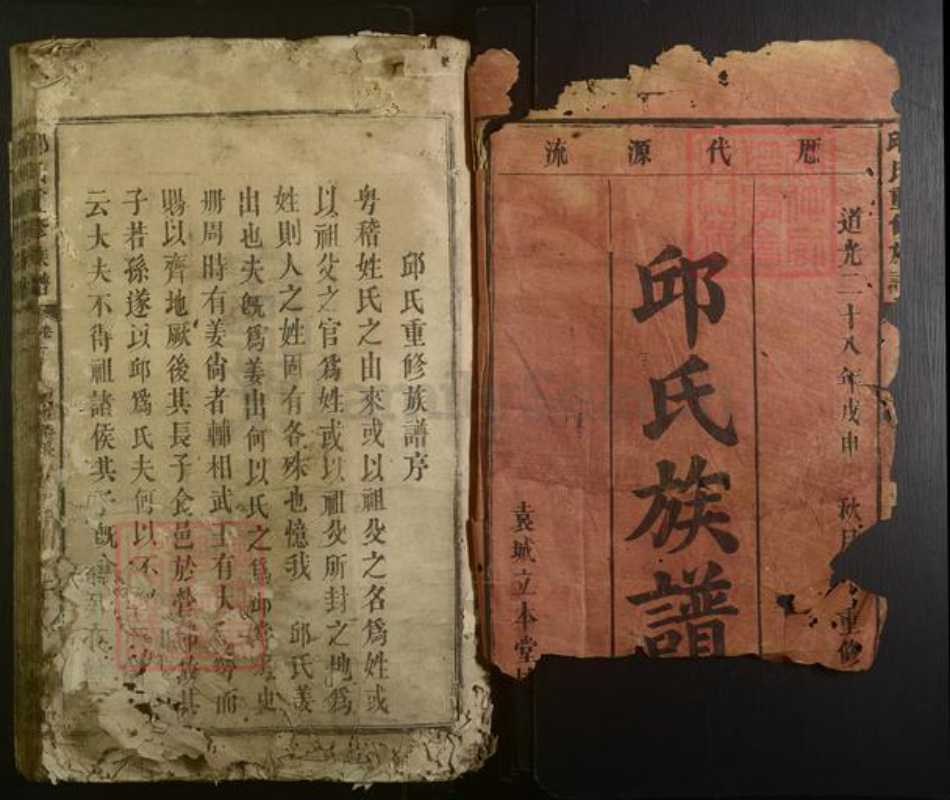 厯代源流
道光二十八年戊申 秋月 重修
邱氏族譜
袁城立本堂
邱氏重修族譜
邱氏重修族譜序
粤稽姓氏之由來或以祖父之名爲姓或
以祖父之官爲姓或以祖父所封之地爲
姓則人之姓固有各殊也憶我 邱氏姜
出也夫旣爲姜出何以氏之爲邱
冊周時有姜尙者輔相武王有大 而
賜以齊地厥後其長子食邑於營邱故其
子若孫遂以邱爲氏夫何以不
云大夫不得祖諸侯其子旣